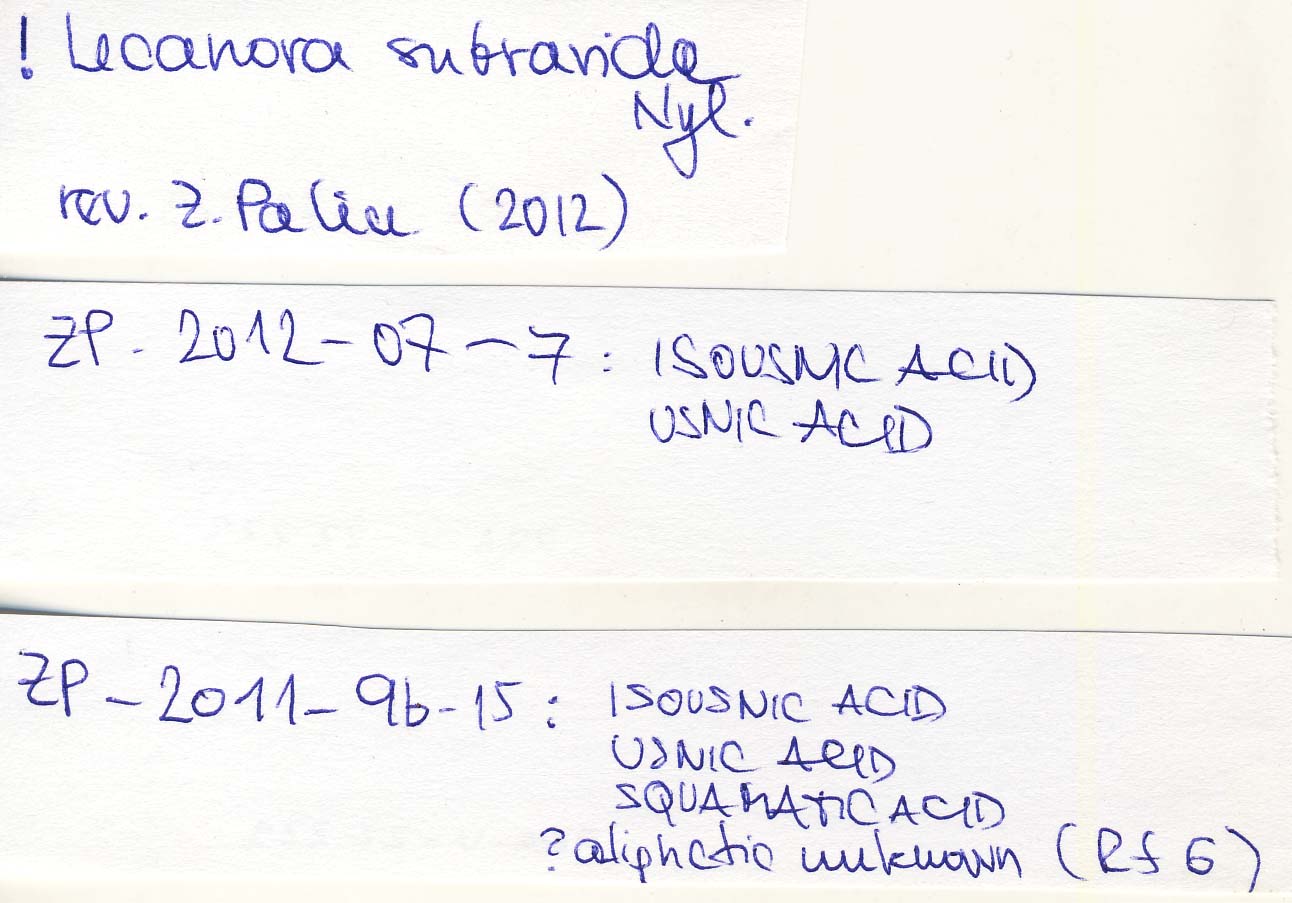 ! Lecanora subravida
Nyl.
rev. Z. Palice (2012)
ZP - 2012 - 07 - 7 : ISOUSNIC ACID
USNIC ACID
ZP - 2011 - 9b - 15 : ISOUSNIC ACID
USNIC ACID
SQUAMATIC ACID
? aliphatic unknown (Rf 6)